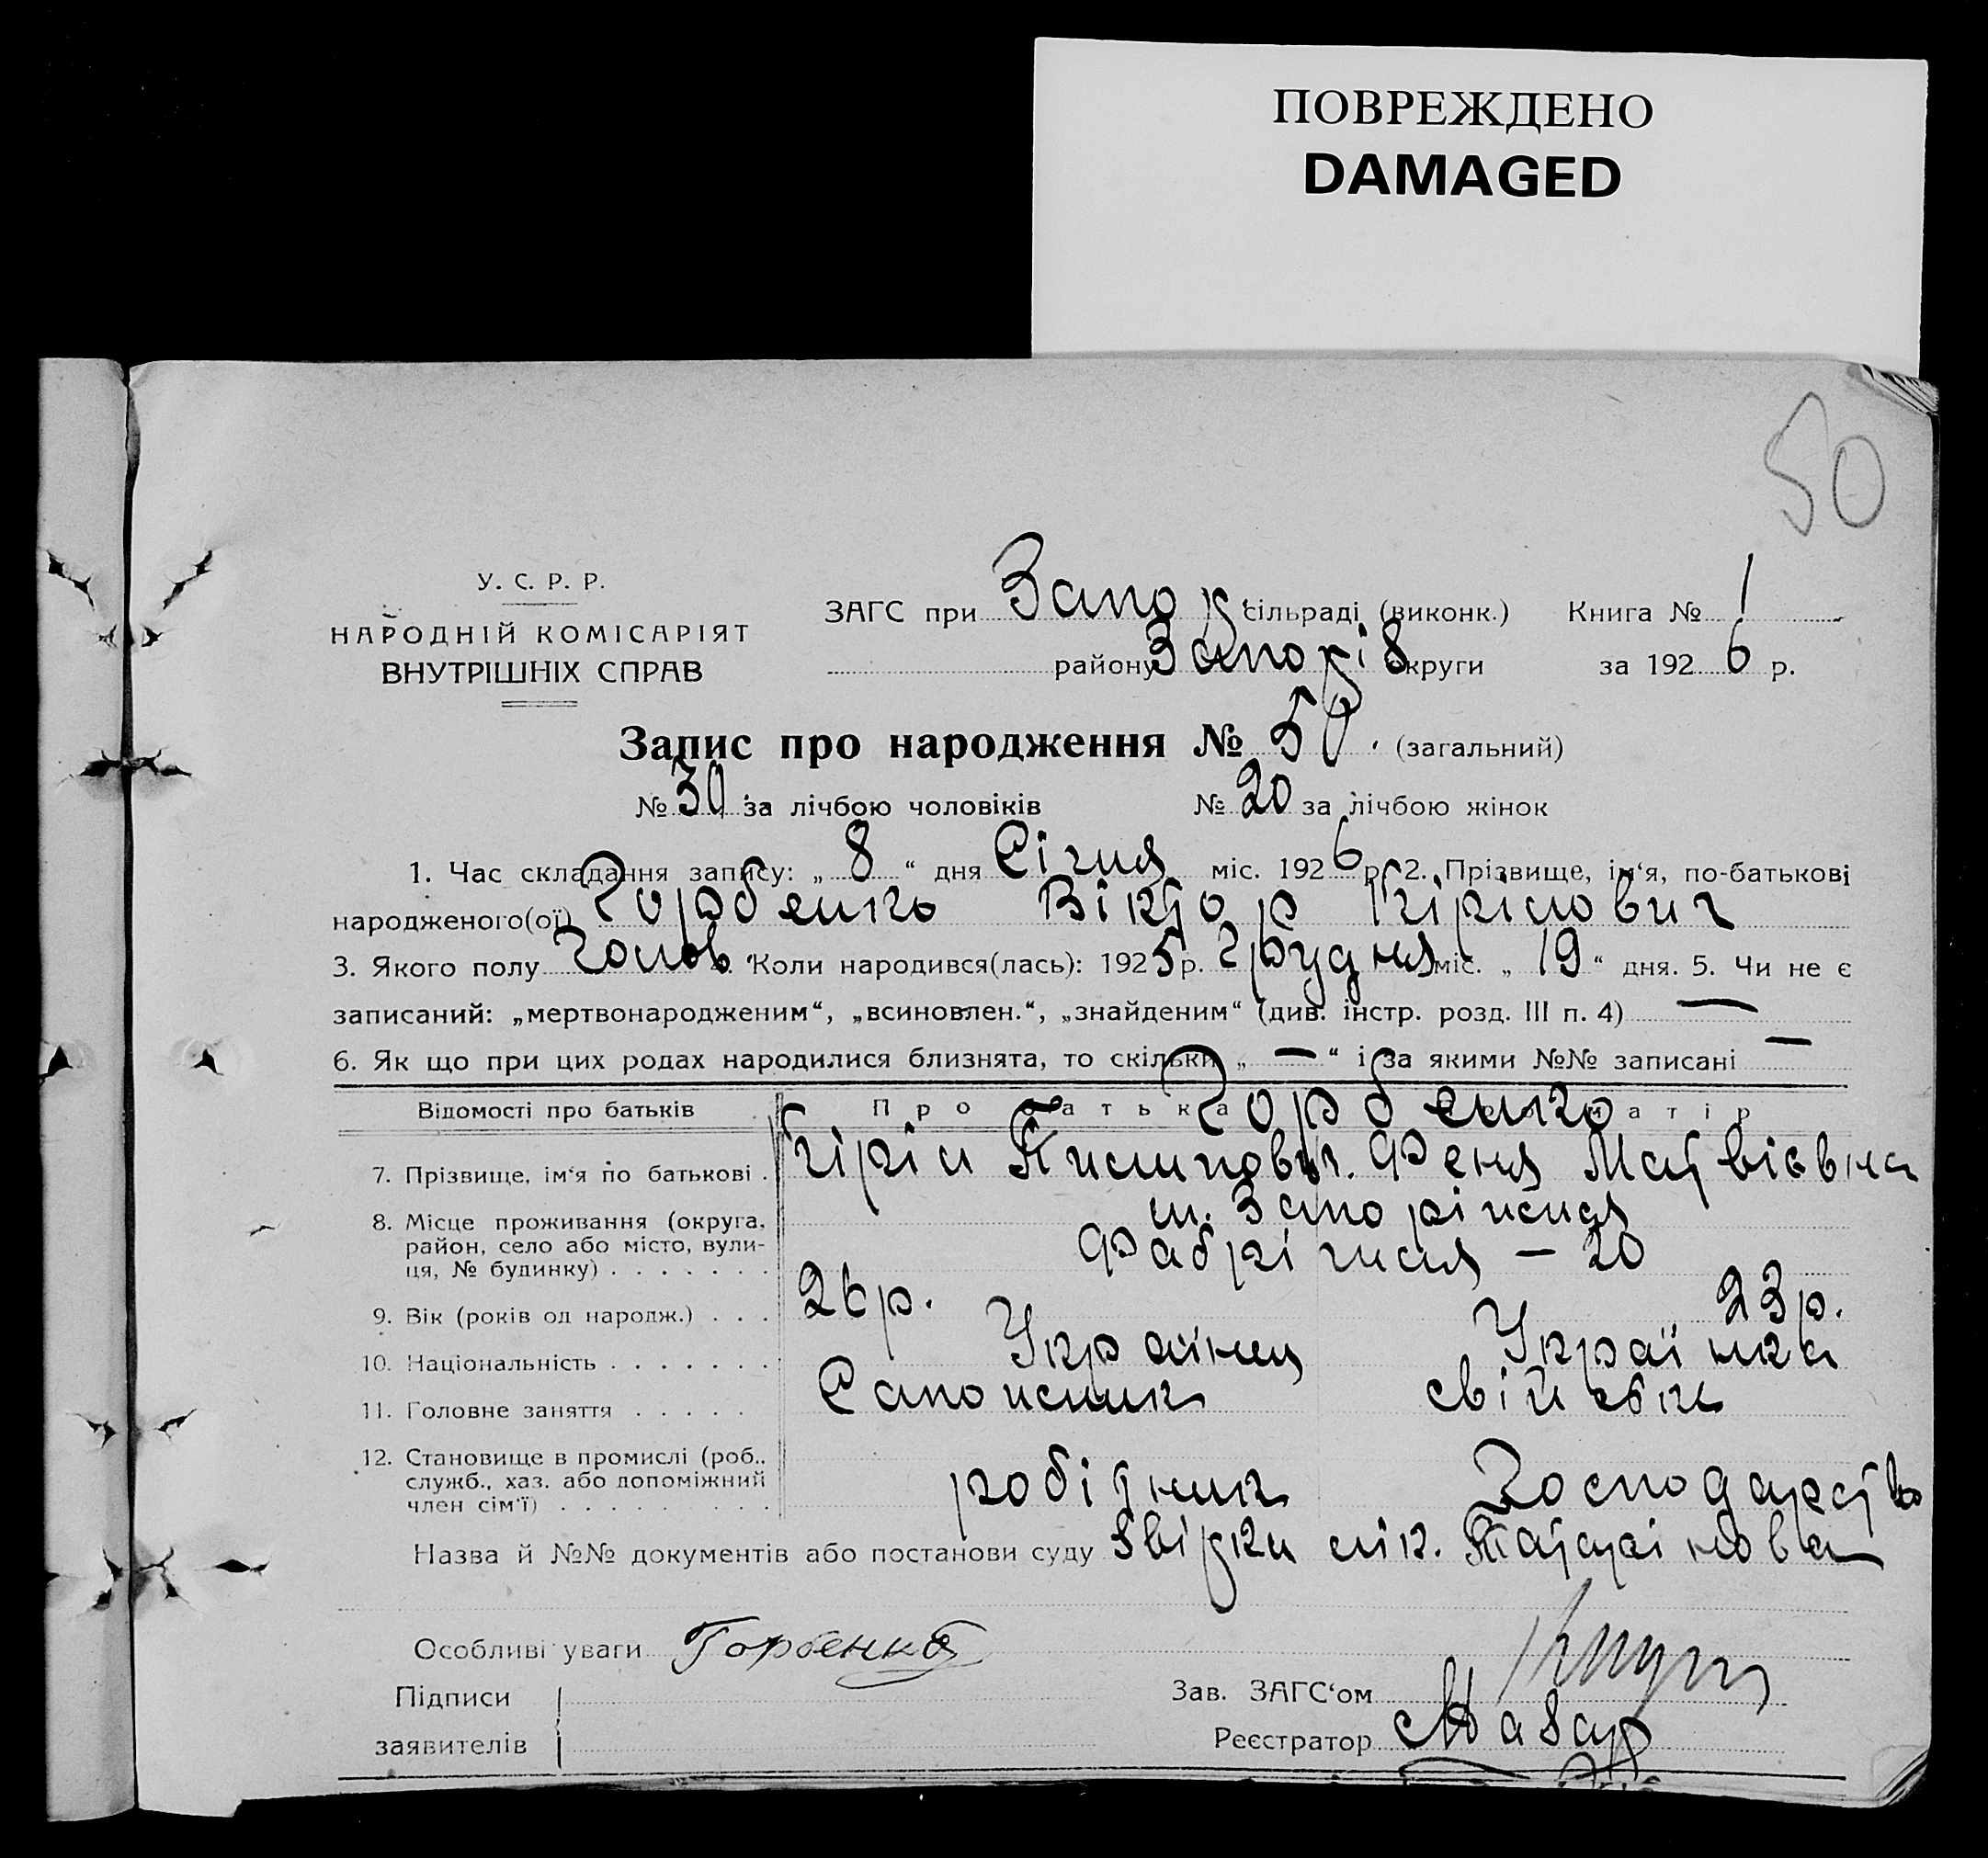 ПОВРЕЖДЕНО
DAMAGED
50
У. С. Р. Р.
НАРОДНІЙ КОМІСАРІЯТ
ВНУТРІШНІХ СПРАВ
ЗАГС при Запор сільраді (виконк.) Книга № 1
району Запоріз округи за 192 6 р.
Запис про народження № 50. (загальний)
№ 30 за лічбою чоловіків № 20 за лічбою жінок
1. Час складання запису: „ 8 “ дня Січня міс. 192 6 р. 2. Прізвище, ім‘я, по-батькові
народженого(ої) Горбенко Віктор Кірілович
3. Якого полу Чолов. Коли народився(лась): 192 5 р. Грудня міс. „ 19 “ дня. 5. Чи не є
записаний: „мертвонародженим“, „всиновлен.“, „знайденим“ (див. інстр. розд. III п. 4) —
6. Як що при цих родах народилися близнята, то скільки „ — “ і за якими №№ записані —
Відомості про батьків Про батька Горбенко матір
7. Прізвище, ім‘я по батькові . Кіріл Феня Матвієвна
8. Місце проживання (округа, м. Запоріжжя
район, село або місто, вули- Фабрічная — 20
ця, № будинку) . . . . . . .
9. Вік (років од народж.) . . . 26 р. 23 р.
10. Національність . . . . . . . Українец Українка
11. Головне заняття . . . . . Сапожник свійське
12. Становище в промислі (роб.. робітник Господарство
служб., хаз. або допоміжний
член сім‘ї) . . . . . . . . .
Назва й №№ документів або постанови суду Звідка лік. Татарінова
Особливі уваги Горбенко
Підписи
заявителів
Зав. ЗАГС‘ом
Реєстратор Назар